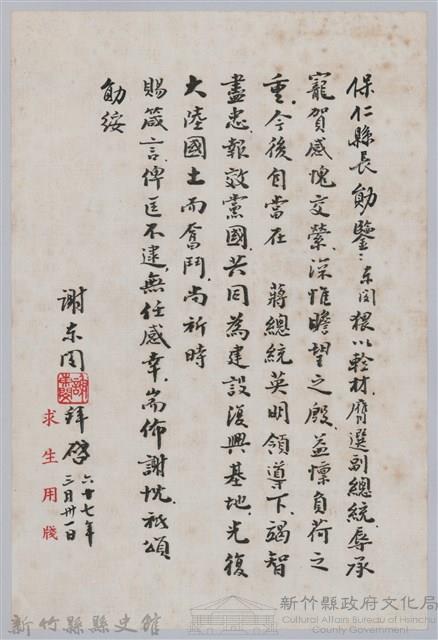 保仁縣長勛鑒：東閔猥以輇材，膺選副總統，辱承
寵賀，感愧交縈，深惟瞻望之殷，益懍負荷之
重，今後自當在　蔣總統英明領導下，竭智
盡忠，報效黨國，共同為建設復興基地，光復
大陸國土而奮鬥，尚祈時
賜箴言，俾匡不逮，無任感幸，耑佈謝忱，祇頌
勛綏
謝東閔
拜啓
六十七年
三月卅一日
求生用牋
新竹縣縣史館
新竹縣政府文化局
Cultural Affairs Bureau of Hsinchu
County Government